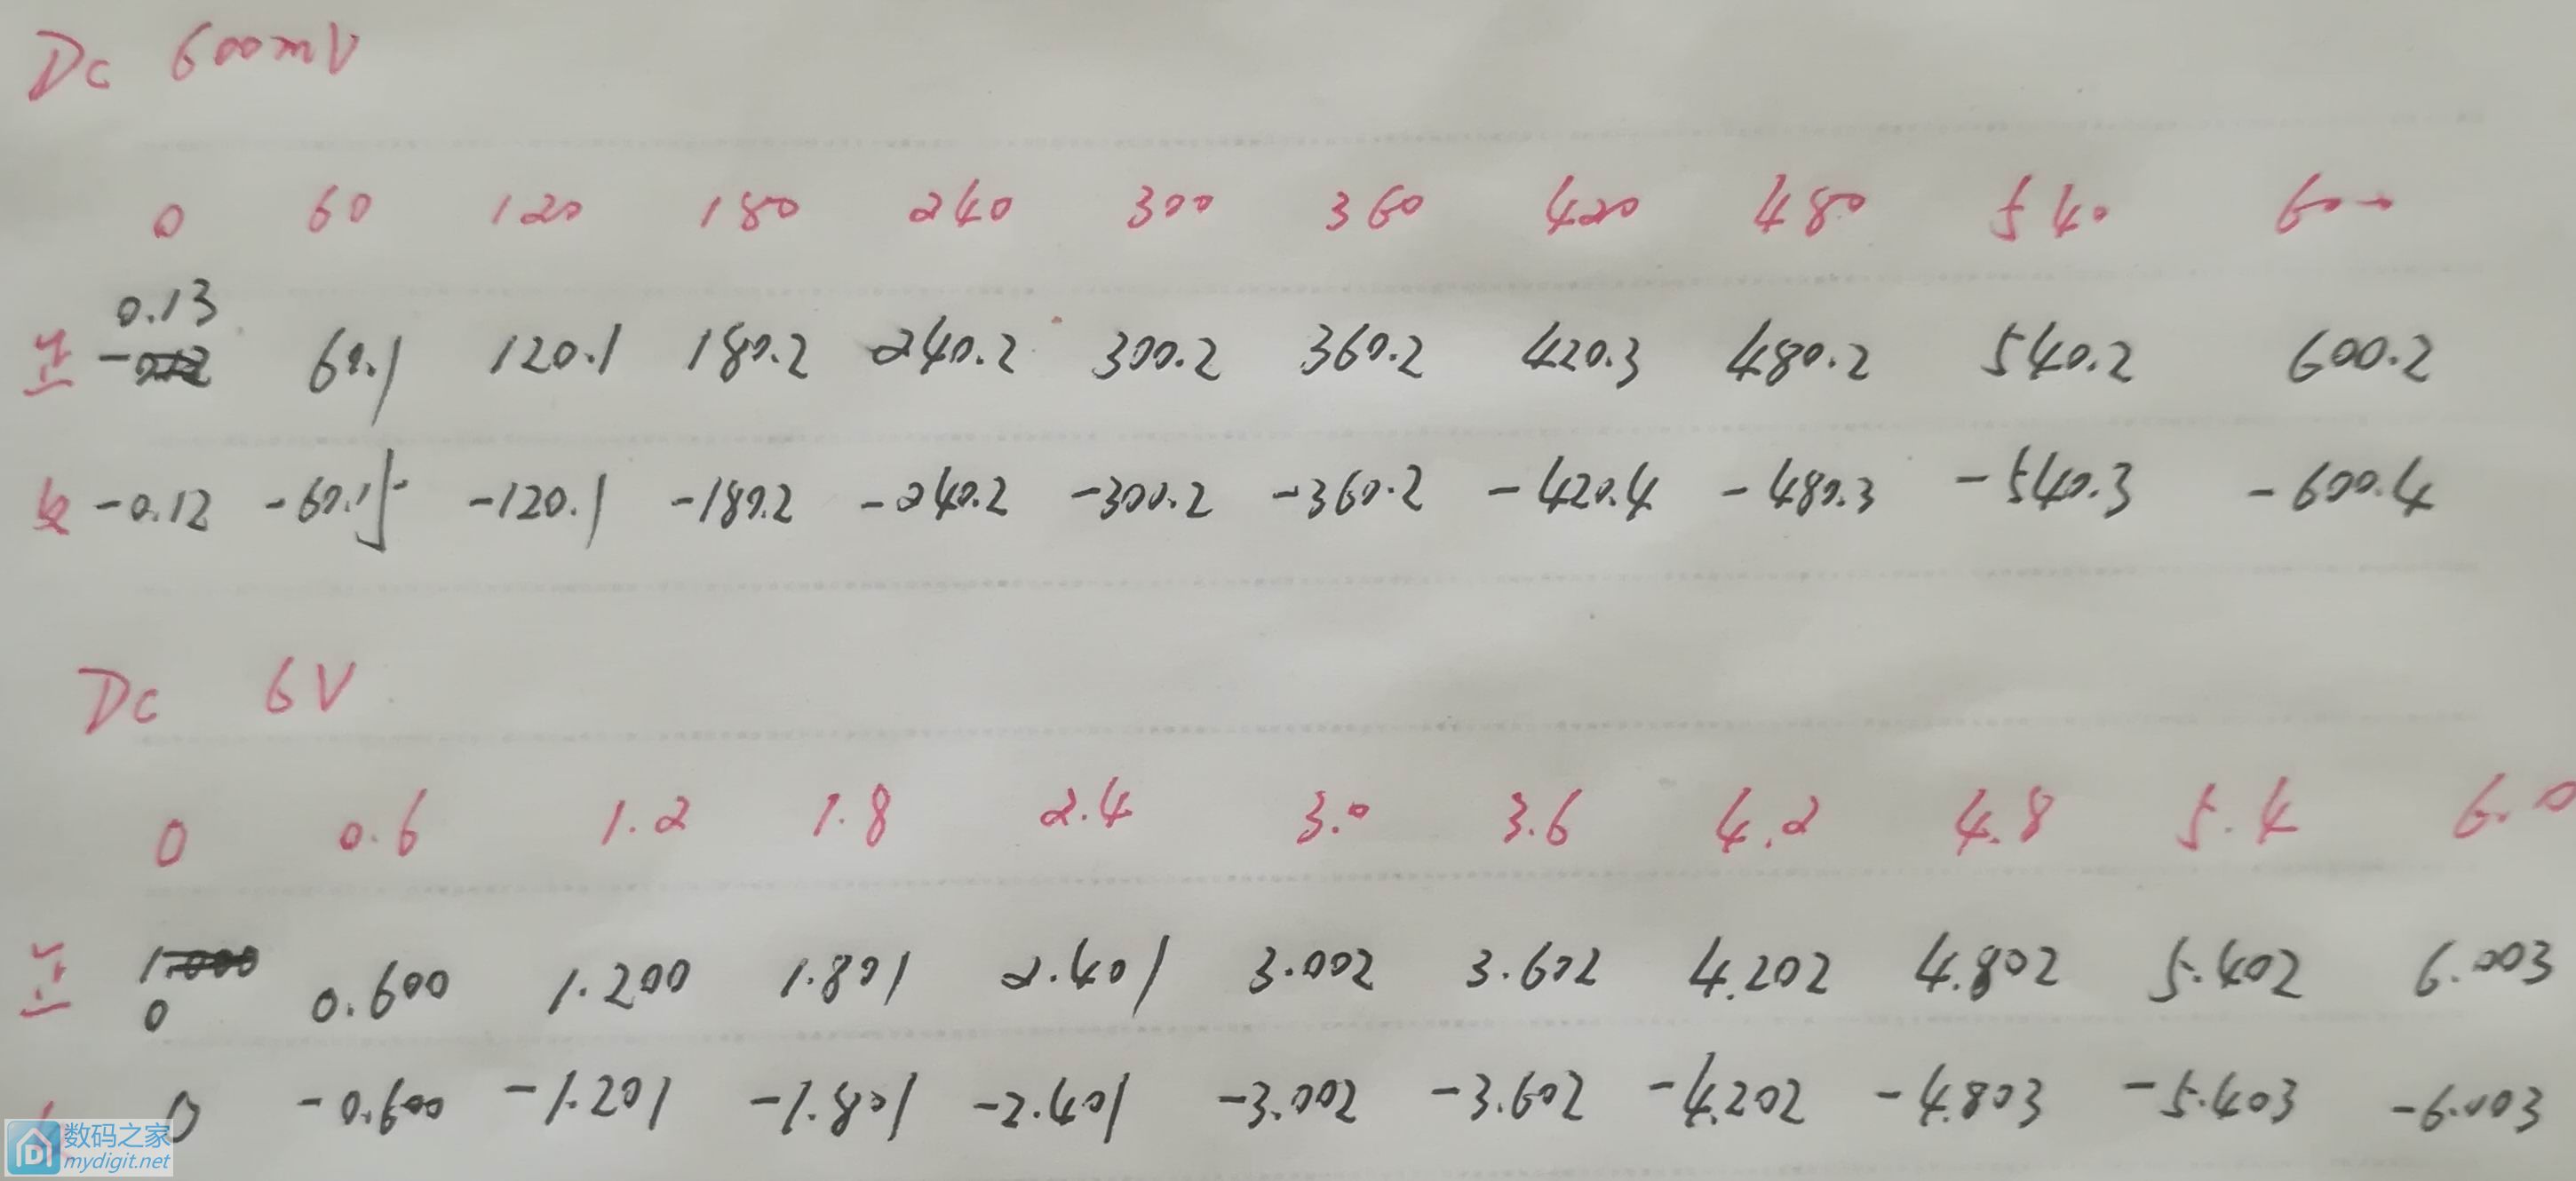 Dc 600mV
0 60 120 180 240 300 360 420 480 540 600
0.13
正 60.1 120.1 180.2 240.2 300.2 360.2 420.3 480.2 540.2 600.2
负 -0.12 -60.1 -120.1 -180.2 -240.2 -300.2 -360.2 -420.4 -480.3 -540.3 -600.4
Dc 6V
0 0.6 1.2 1.8 2.4 3.0 3.6 4.2 4.8 5.4 6.0
正 0 0.600 1.200 1.801 2.401 3.002 3.602 4.202 4.802 5.402 6.003
0 -0.600 -1.201 -1.801 -2.401 -3.002 -3.602 -4.202 -4.803 -5.403 -6.003
数码之家
mydigit.net